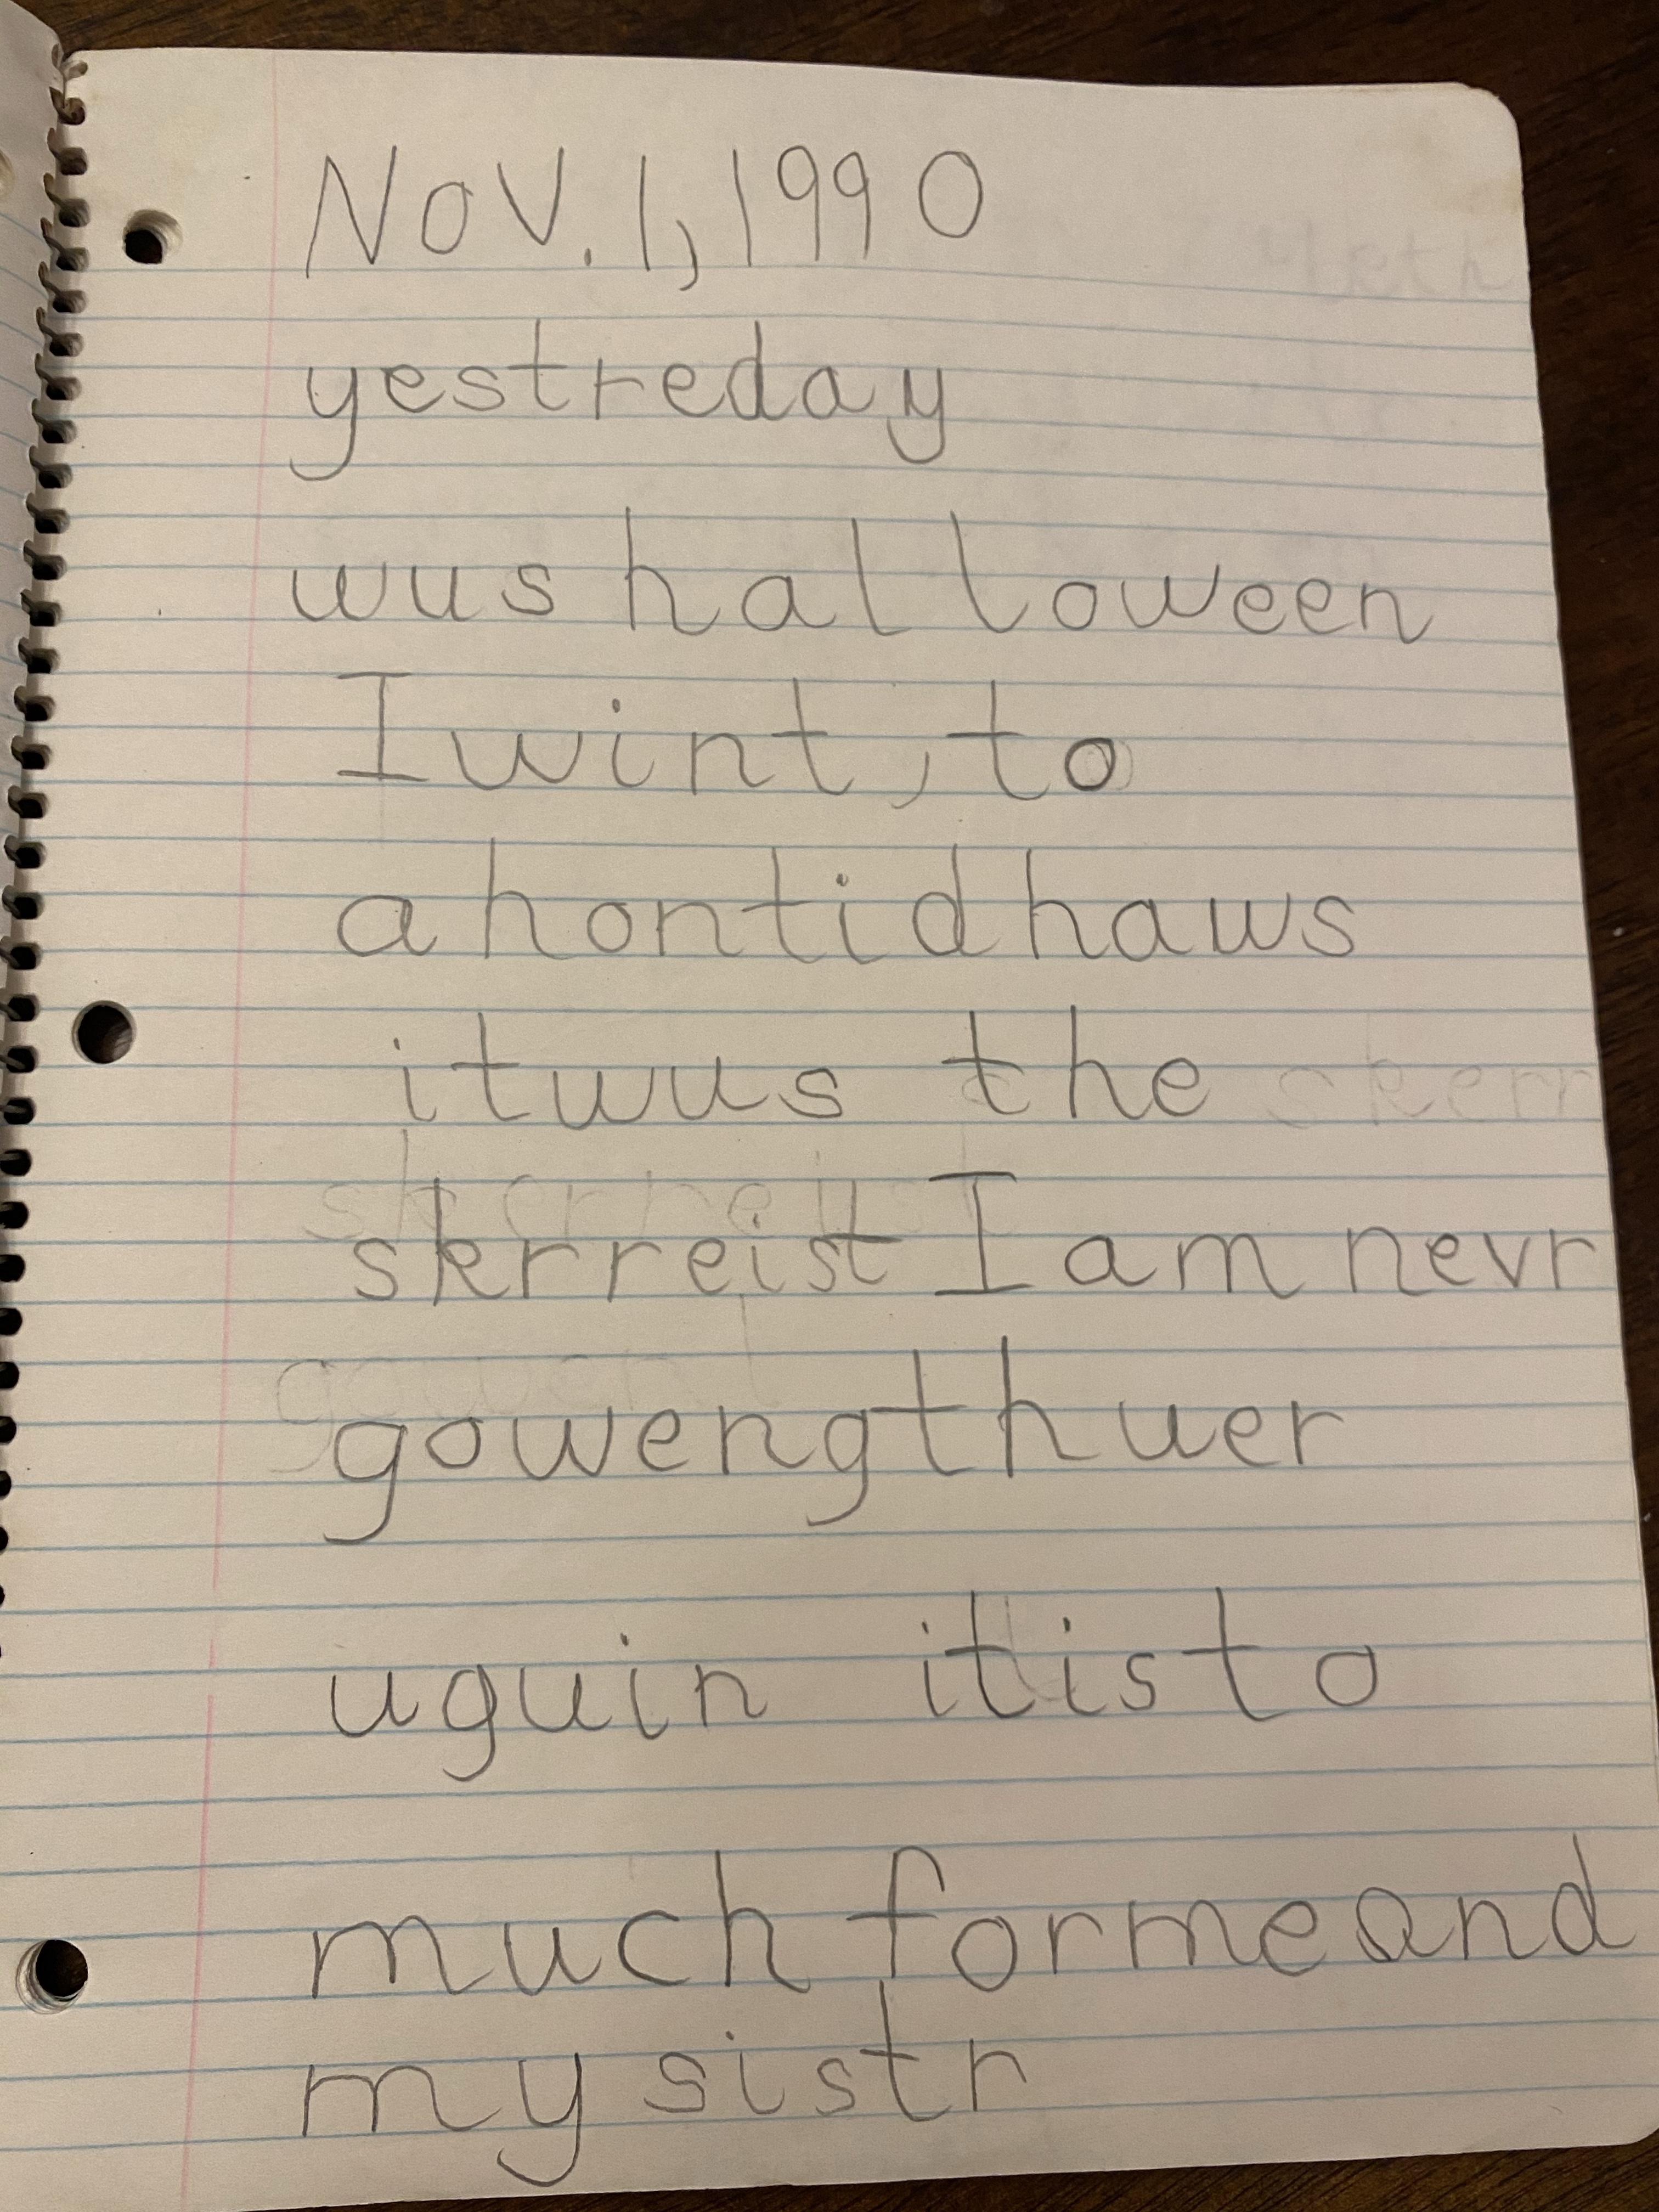 Nov. 1, 1990
yestreday
wus halloween
I wint, to
a hontid haws
it wus the
skrreist I am nevr
goweng thuer
uguin it is to
much for me and
my sistr